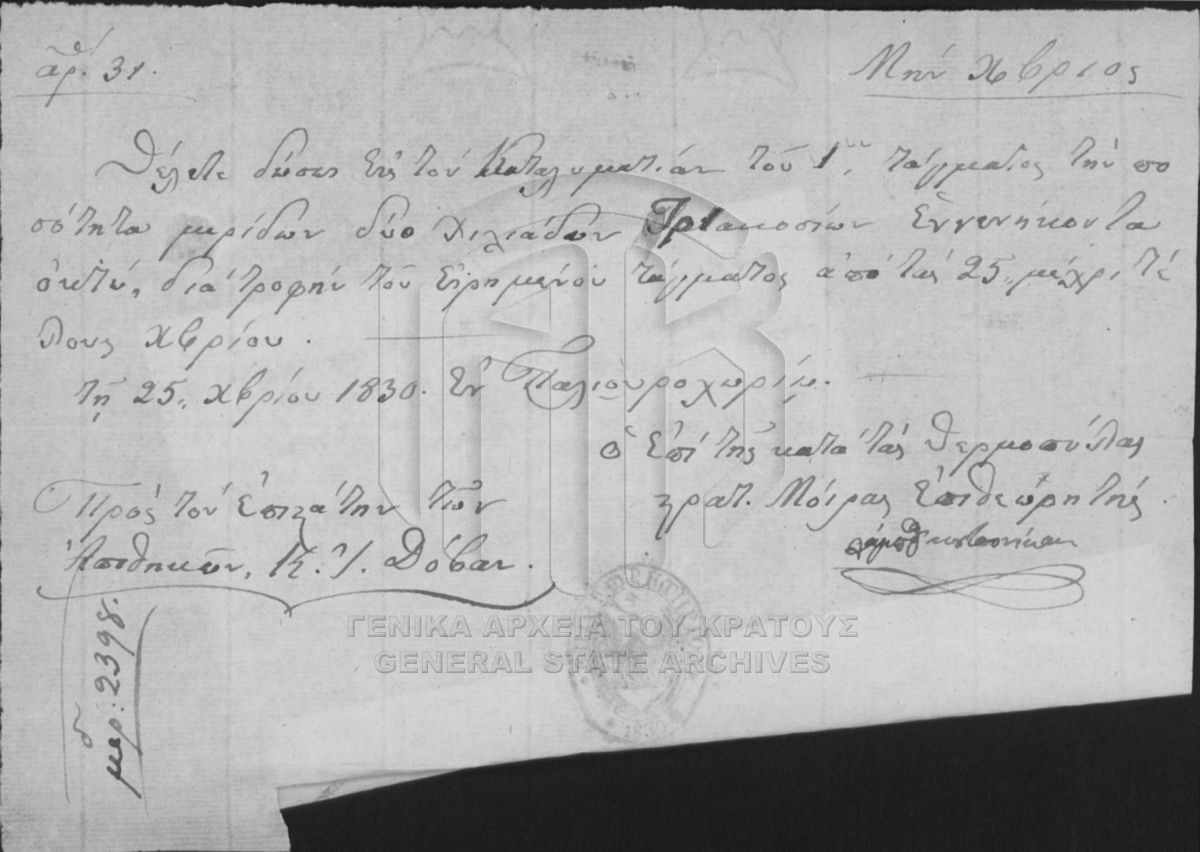 ἀρ.θ 31.
Μὴν Χβριος
Θέλετε δώσει εἰς τὸν Καταλυματιὰν τοῦ 1ου τάγματος τὴν πο
σότητα μερίδων δύο χιλιάδων Τριακοσίων ἐννενήκοντα
ὀκτώ, διὰ τροφὴν τοῦ εἰρημένου τάγματος ἀπὸ τὰς 25,, μέχρι τέ
λους Χβρίου.
τῇ 25,, Χβρίου 1830. Ἐν Παλιουροχωρίῳ.
ὁ ἐπὶ τῆς κατὰ τὰς Θερμοπύλας
στρατ. Μοίρας ἐπιθεωρητής.
Πρὸς τὸν ἐπιστάτην τῶν
Ἀποθηκῶν, Κ. Ἰ. Δόβαν.
μερδ: 2398.
ΓΕΝΙΚΑ ΑΡΧΕΙΑ ΤΟΥ ΚΡΑΤΟΥΣ
GENERAL STATE ARCHIVES